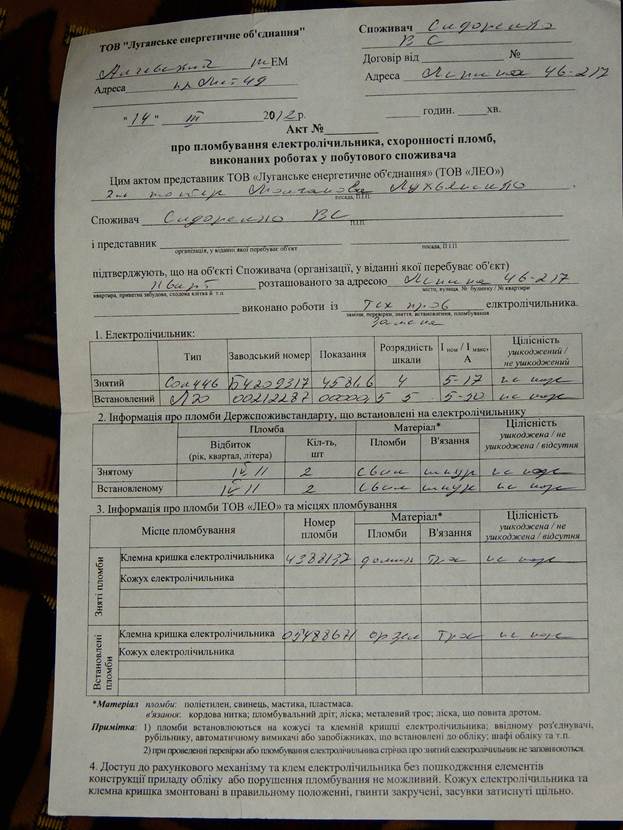 ТОВ "Луганське енергетичне об'єднання"
Алчевский ЕМ
Адреса
"14" III 2012 р.
Споживач Сидоренко
ВС
Договір від №
Адреса Ленина 46-217
годин. хв.
Акт №
про пломбування електролічильника, схоронності пломб,
виконаних роботах у побутового споживача
Цим актом представник ТОВ «Луганське енергетичне об'єднання» (ТОВ «ЛЕО»)
посада, П.І.П.
Споживач Сидоренко ВС
П.І.П.
і представник
організація, у віданні якої перебуває об'єкт посада, П.І.П.
підтверджують, що на об'єкті Споживача (організації, у віданні якої перебуває об'єкт)
кварт розташованого за адресою Ленина 46-217
квартира, приватна забудова, сходова клітка й т.п. місто, вулиця, № будинку / № квартири
виконано роботи із Тех пров елктролічильника.
заміни, перевірки, зняття, встановлення, пломбування
Замена
1. Електролічильник:
Тип Заводський номер Показання Розрядність шкали I ном / I макс, А Цілісність ушкоджений / не ушкоджений
Знятий Сол446 4 5-17 не
Встановлений 00212287 5 не
2. Інформація про пломби Держспоживстандарту, що встановлені на електролічильнику
Пломба Матеріал* Цілісність ушкоджена / не ушкоджена / відсутня
Відбиток (рік, квартал, літера) Кіл-ть, шт Пломби В'язання
Знятому IV 11 2 свин шнур не
Встановленому IV 11 2 свин шнур не
3. Інформація про пломби ТОВ «ЛЕО» та місцях пломбування
Місце пломбування Номер пломби Матеріал* Цілісність ушкоджена / не ушкоджена / відсутня
Пломби В'язання
Зняті пломби
Клемна кришка електролічильника 4388137 не
Кожух електролічильника
Встановлені пломби
Клемна кришка електролічильника не
Кожух електролічильника
*Матеріал пломби: поліетилен, свинець, мастика, пластмаса.
в'язання: кордова нитка; пломбувальний дріт; ліска; металевий трос; ліска, що повита дротом.
Примітка: 1) пломби встановлюються на кожусі та клемній кришці електролічильника; ввідному роз'єднувачі,
рубільнику, автоматичному вимикачі або запобіжниках, що встановлені до обліку; шафі обліку та т.п.
2) при проведенні перевірки або пломбування електролічильника стрічка про знятий електролічильник не заповнюються.
4. Доступ до рахункового механізму та клем електролічильника без пошкодження елементів
конструкції приладу обліку або порушення пломбування не можливий. Кожух електролічильника та
клемна кришка змонтовані в правильному положенні, гвинти закручені, засувки затиснуті щільно.